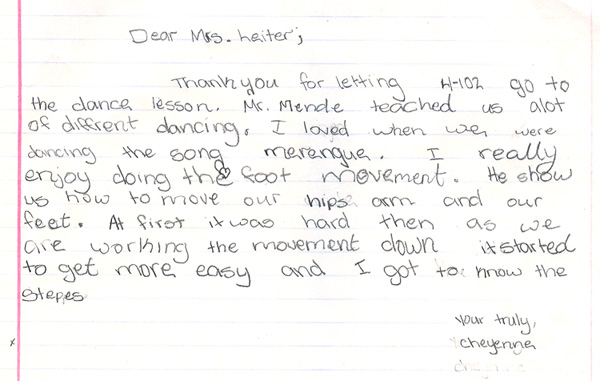 Dear Mrs. Leiter;
Thank you for letting H-102 go to
the dance lesson. Mr. Mende teached us alot
of diffrent dancing. I loved when we were
dancing the song merengue. I really
enjoy doing the foot movement. He show
us how to move our hips arm and our
feet. At first it was hard then as we
are working the movement down it started
to get more easy and I got to know the
stepes
your truly,
cheyenne